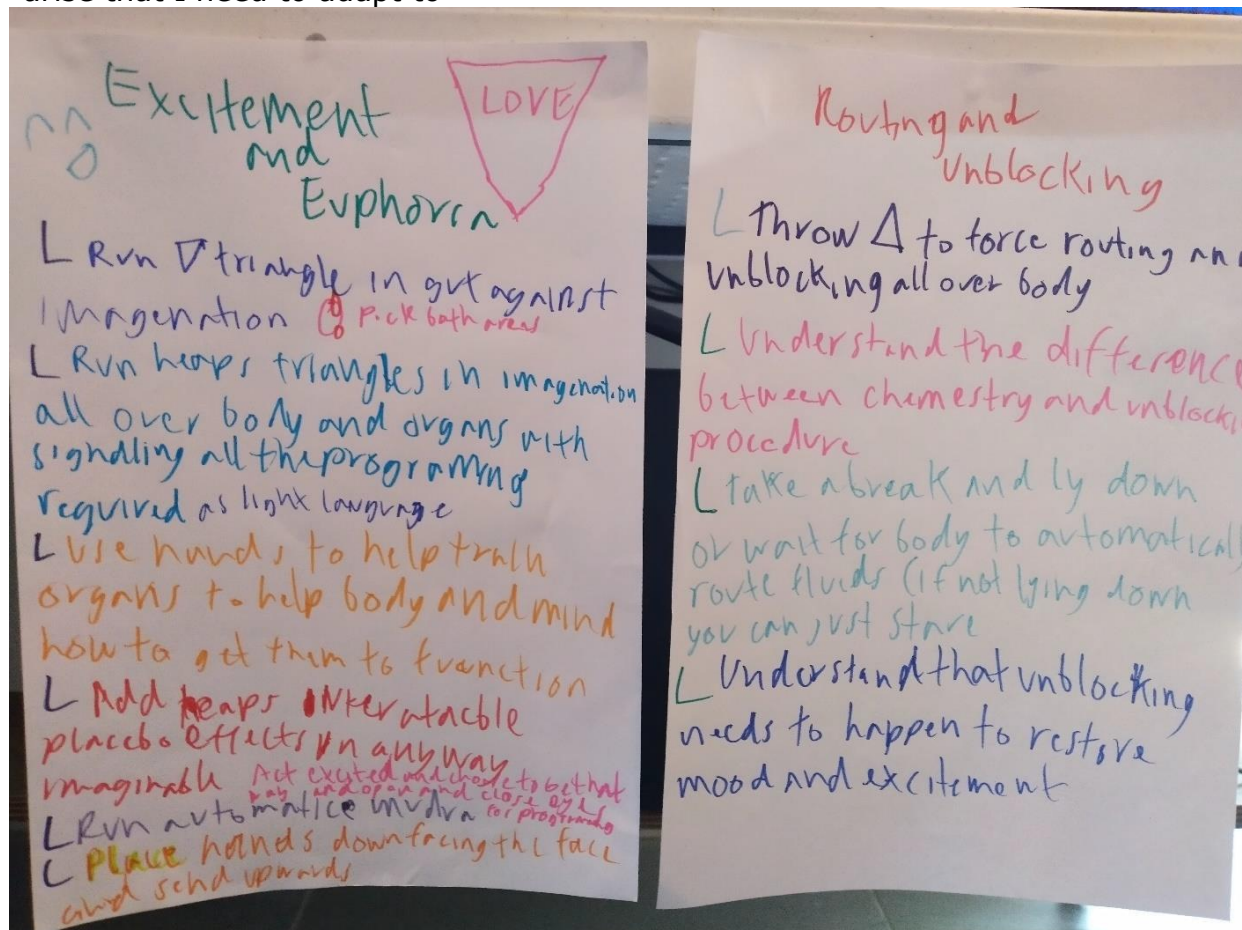 arise that I need to adapt to
Excitement
and
Euphoria
LOVE
L Run ∇ triangle in gut against
imagenation pick both areas
L Run heaps triangles in imagenation
all over body and organs with
signalling all the programing
required as light language
L Use hands to help train
organs to help body and mind
how to get them to function
L Add heaps
placebo effects in any way
imaginable Act excited and chose to be that
way and open and close eyes
L Run automatice mudra for programing
L Place hands down facing the face
and send upwards
Routing and
Unblocking
L Throw Δ to force routing an
unblocking all over body
L Understand the difference
between chemestry and unblocki
procedure
L take a break and ly down
or wait for body to automatical
route fluids (if not lying down
you can just stare
L Understand that unblocking
needs to happen to restore
mood and excitement